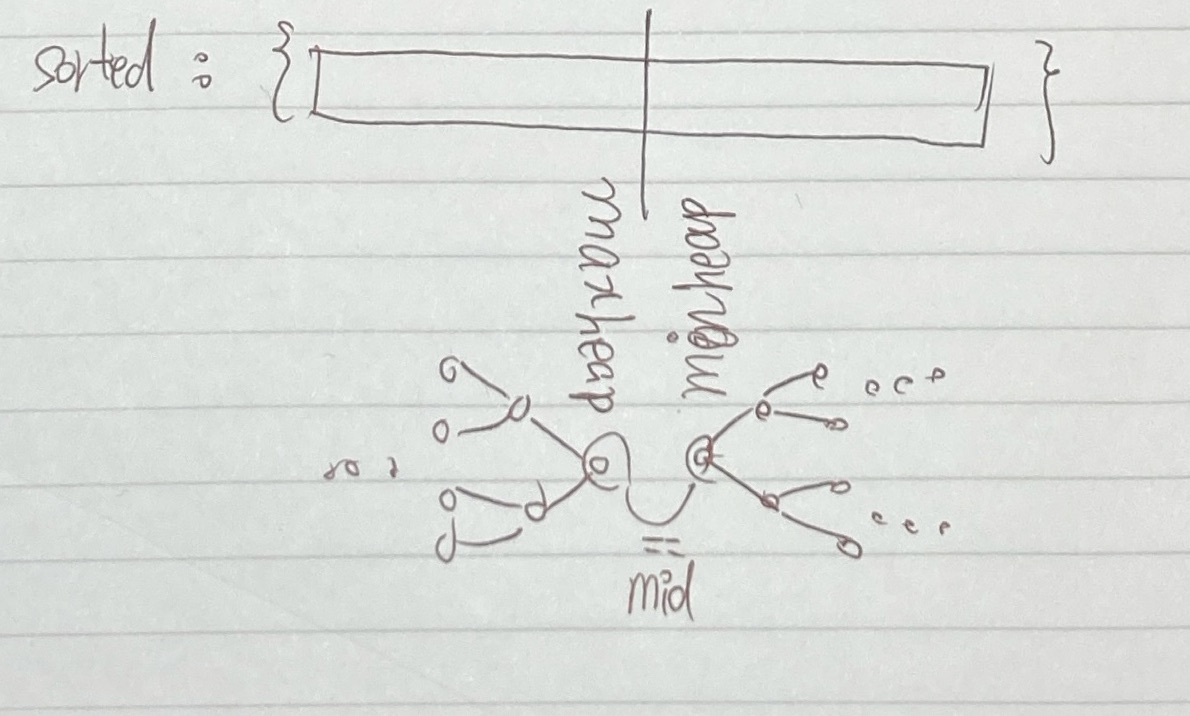 sorted : { }
maxheap
minheap
mid